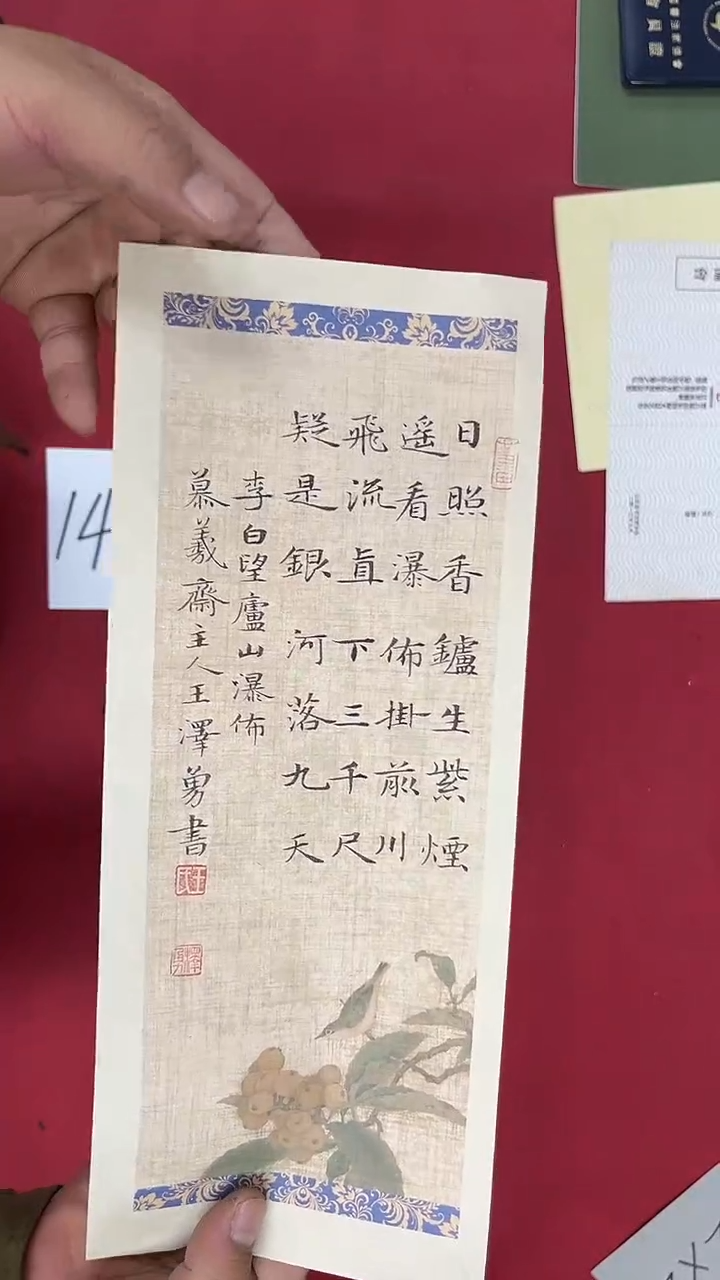 日照香鑪生紫煙
遥看瀑佈掛前川
飛流直下三千尺
疑是銀河落九天
李白望廬山瀑佈
慕羲齋主人王澤勇書
14